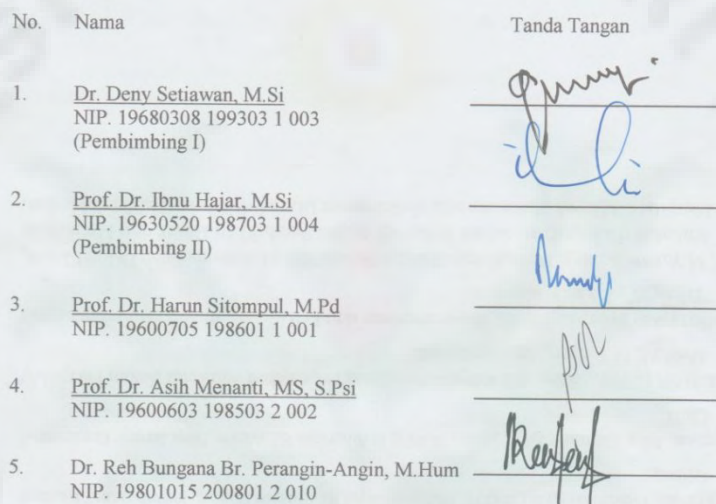 No. Nama Tanda Tangan
1. Dr. Deny Setiawan, M.Si
NIP. 19680308 199303 1 003
(Pembimbing I)
2. Prof. Dr. Ibnu Hajar, M.Si
NIP. 19630520 198703 1 004
(Pembimbing II)
3. Prof. Dr. Harun Sitompul, M.Pd
NIP. 19600705 198601 1 001
4. Prof. Dr. Asih Menanti, MS, S.Psi
NIP. 19600603 198503 2 002
5. Dr. Reh Bungana Br. Perangin-Angin, M.Hum
NIP. 19801015 200801 2 010